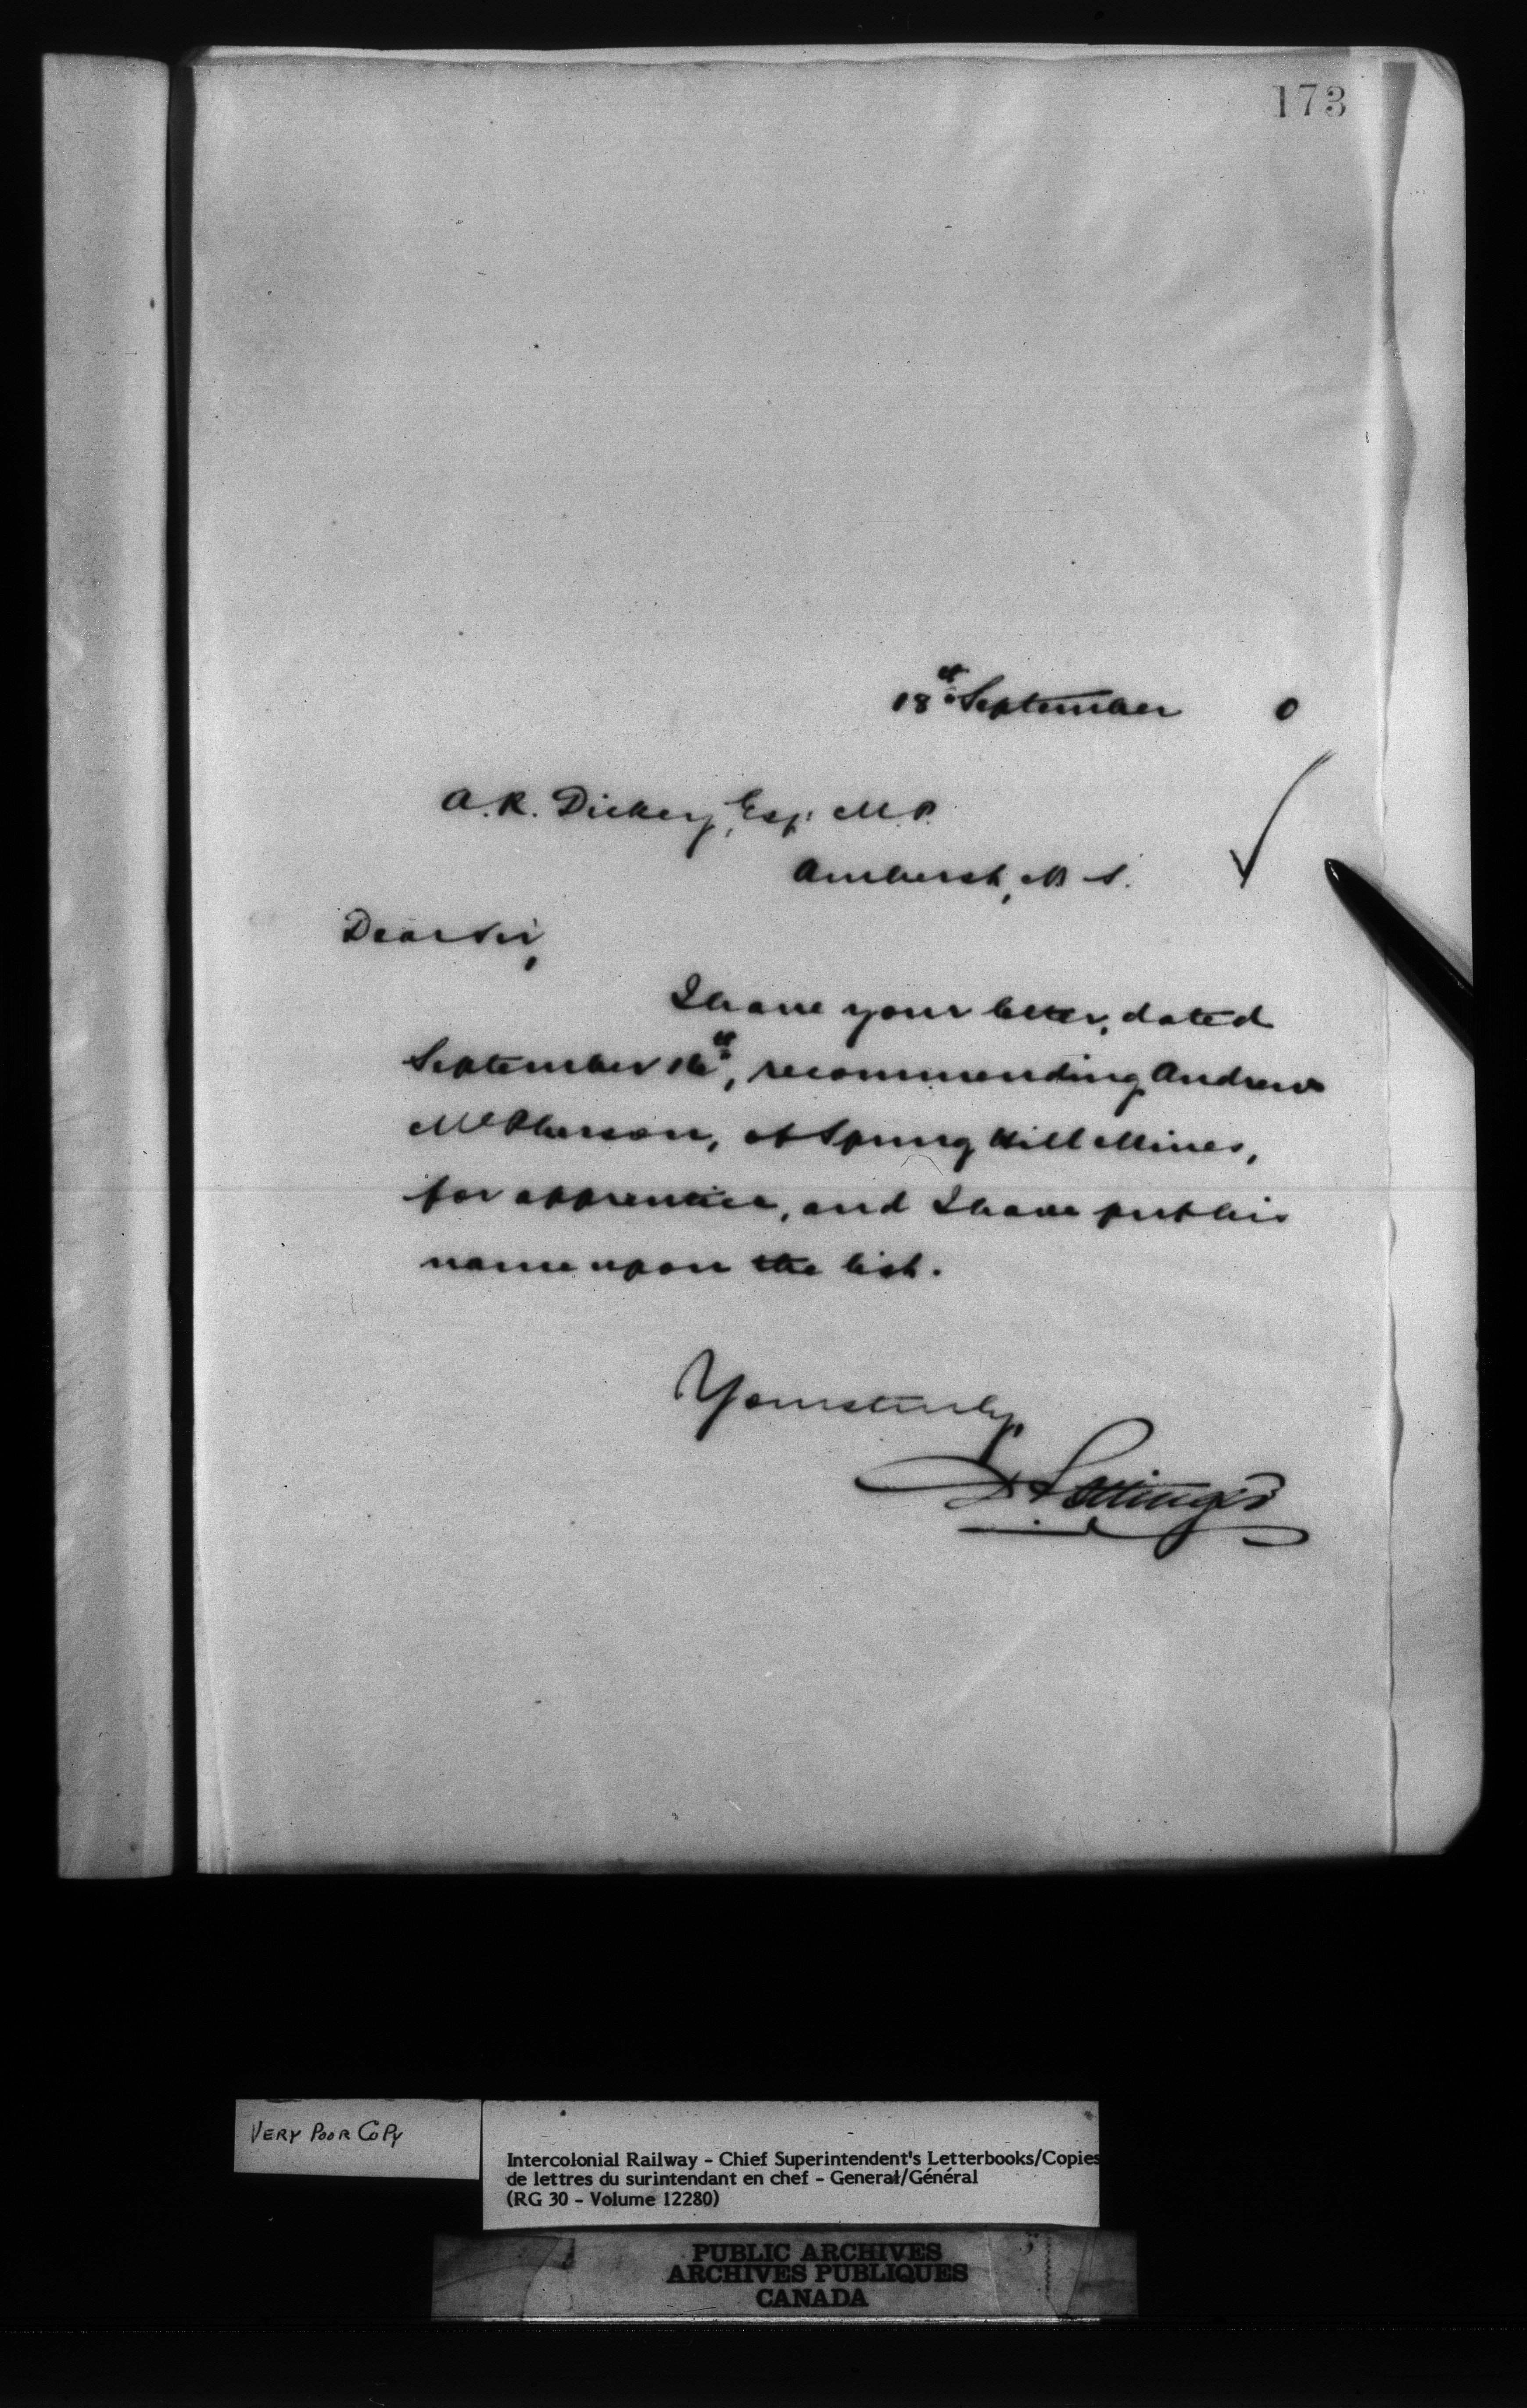 173
18th September 0
A. R. Dickey, Esq. M.P.
Amherst, N.S.
Dear Sir,
I have your letter, dated
September 16th, recommending Andrew
McPherson, of Spring Hill Mines,
for apprentice, and I have put his
name upon the list.
Yours truly,
D Pottinger
VERY POOR COPY
Intercolonial Railway - Chief Superintendent's Letterbooks/Copies
de lettres du surintendant en chef - General/Général
(RG 30 - Volume 12280)
PUBLIC ARCHIVES
ARCHIVES PUBLIQUES
CANADA